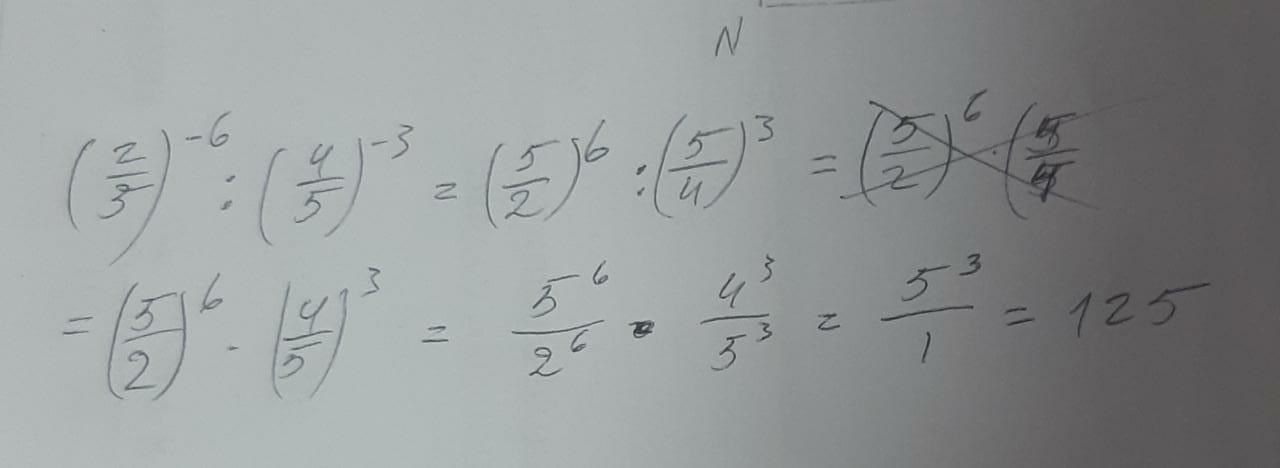 N
(2/3)^-6 : (4/5)^-3 = (5/2)^6 : (5/4)^3 = (5/2)^6 · (5/4
= (5/2)^6 · (4/5)^3 = 5^6/2^6 · 4^3/5^3 = 5^3/1 = 125